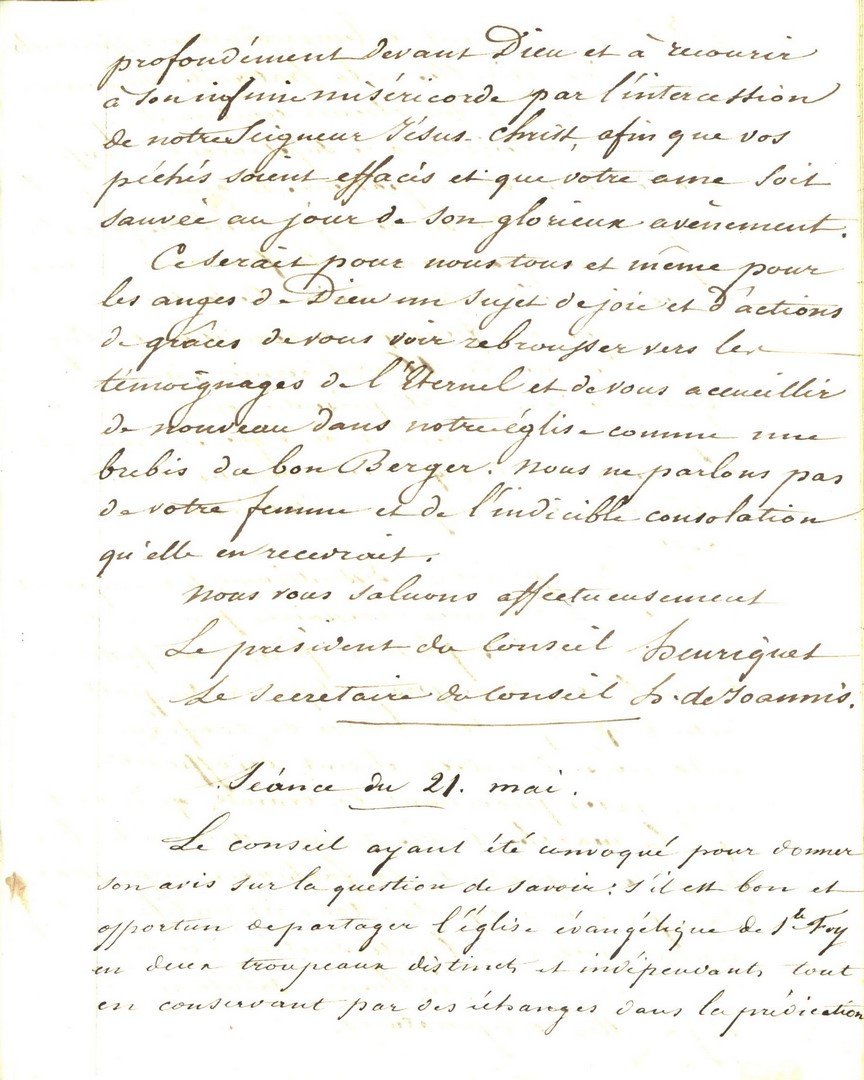 profondément devant Dieu et à recourir
à son infinie miséricorde par l'intercession
de notre Seigneur Jésus-Christ, afin que vos
péchés soient effacés et que votre ame soit
sauvée au jour de son glorieux avènement.
Ce serait pour nous tous et même pour
les anges de Dieu un sujet de joie et d'actions
de grâces de vous voir rebrousser vers les
témoignages de l'Eternel et de vous accueillir
de nouveau dans notre église comme une
brebis du bon Berger. Nous ne parlons pas
de votre femme et de l'indicible consolation
qu'elle en recevrait.
Nous vous saluons affectueusement
Le président du Conseil Henriquet
Le Secretaire du Conseil H. de Joannis.
Séance du 21. mai.
Le conseil ayant été convoqué pour donner
son avis sur la question de savoir: s'il est bon et
opportun de partager l'Église évangélique de Ste Foy
en deux troupeaux distincts et indépendants tout
en conservant par des échanges dans la prédication